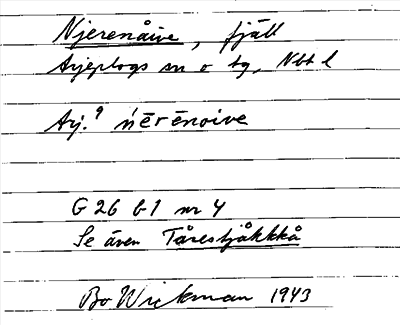 Njerenåive, fjäll
Arjeplogs sn o tg, Nbt l
Arj. 9 ńērēnoive
G 26 b 1 nr 4
Se även Tårestjåkkkå
Bo Wickman 1943